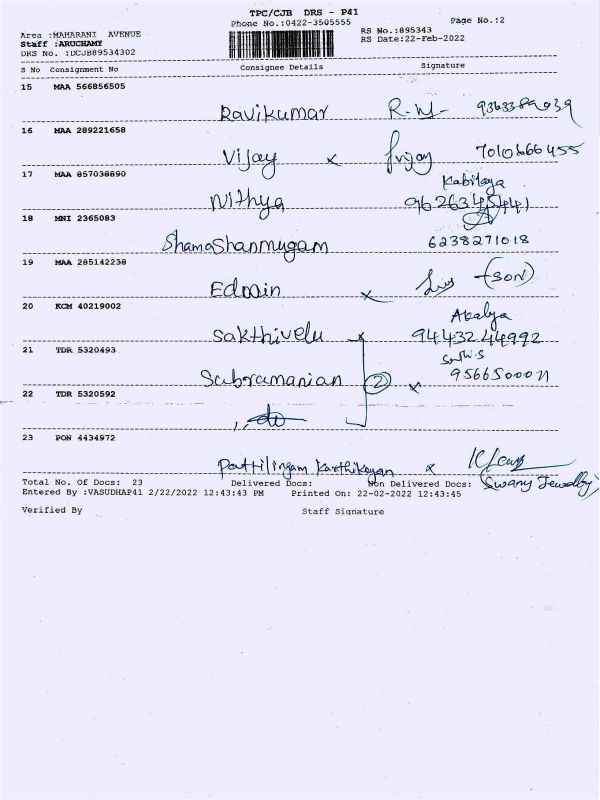 TPC/CJB DRS - P41
Phone No.:0422-3505555 Page No.:2
Area :MAHARANI AVENUE RS No.:895343
Staff :ARUCHAMY RS Date:22-Feb-2022
DRS No. :DCJB89534302
S No Consignment No Consignee Details Signature
15 MAA 566856505
Ravikumar
16 MAA 289221658
Vijay x Vijay 7010666455
17 MAA 857038890
Kabilaya
Nithya 9626345441
18 MNI 2365083
Shamashanmugam 6238271018
19 MAA 285142238
Edwin x (SON)
20 KCM 40219002
Akalya
Sakthivelu x 9443244992
21 TDR 5320493
Subramanian 2 x 9566500071
22 TDR 5320592
,, do
23 PON 4434972
Pattilingam Karthikeyan x
Total No. Of Docs: 23 Delivered Docs: Non Delivered Docs: (Swamy Jewellry)
Entered By :VASUDHAP41 2/22/2022 12:43:43 PM Printed On: 22-02-2022 12:43:45
Verified By Staff Signature